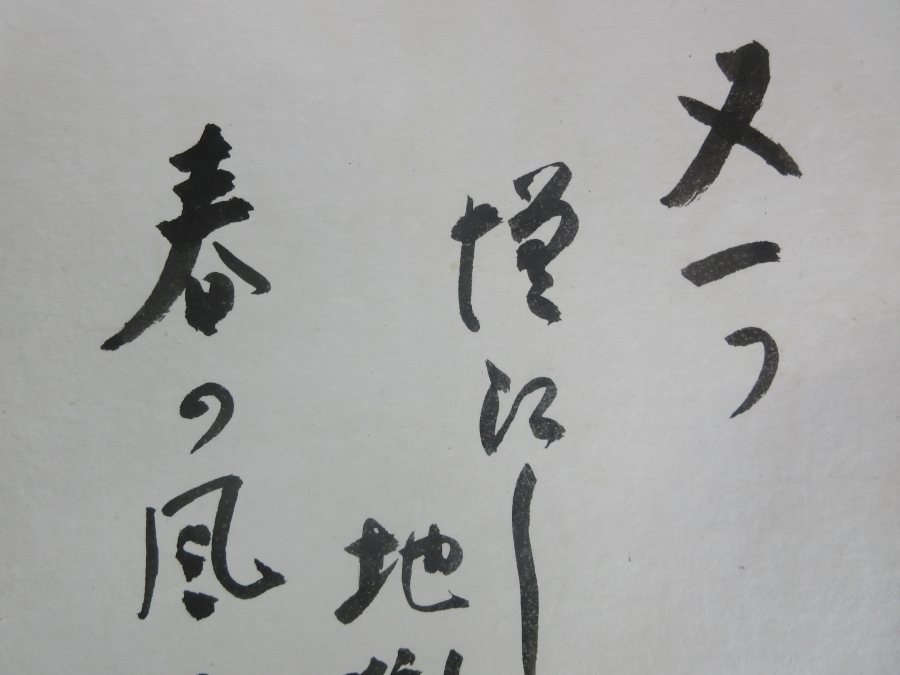 又一つ
増江し
地
春の風